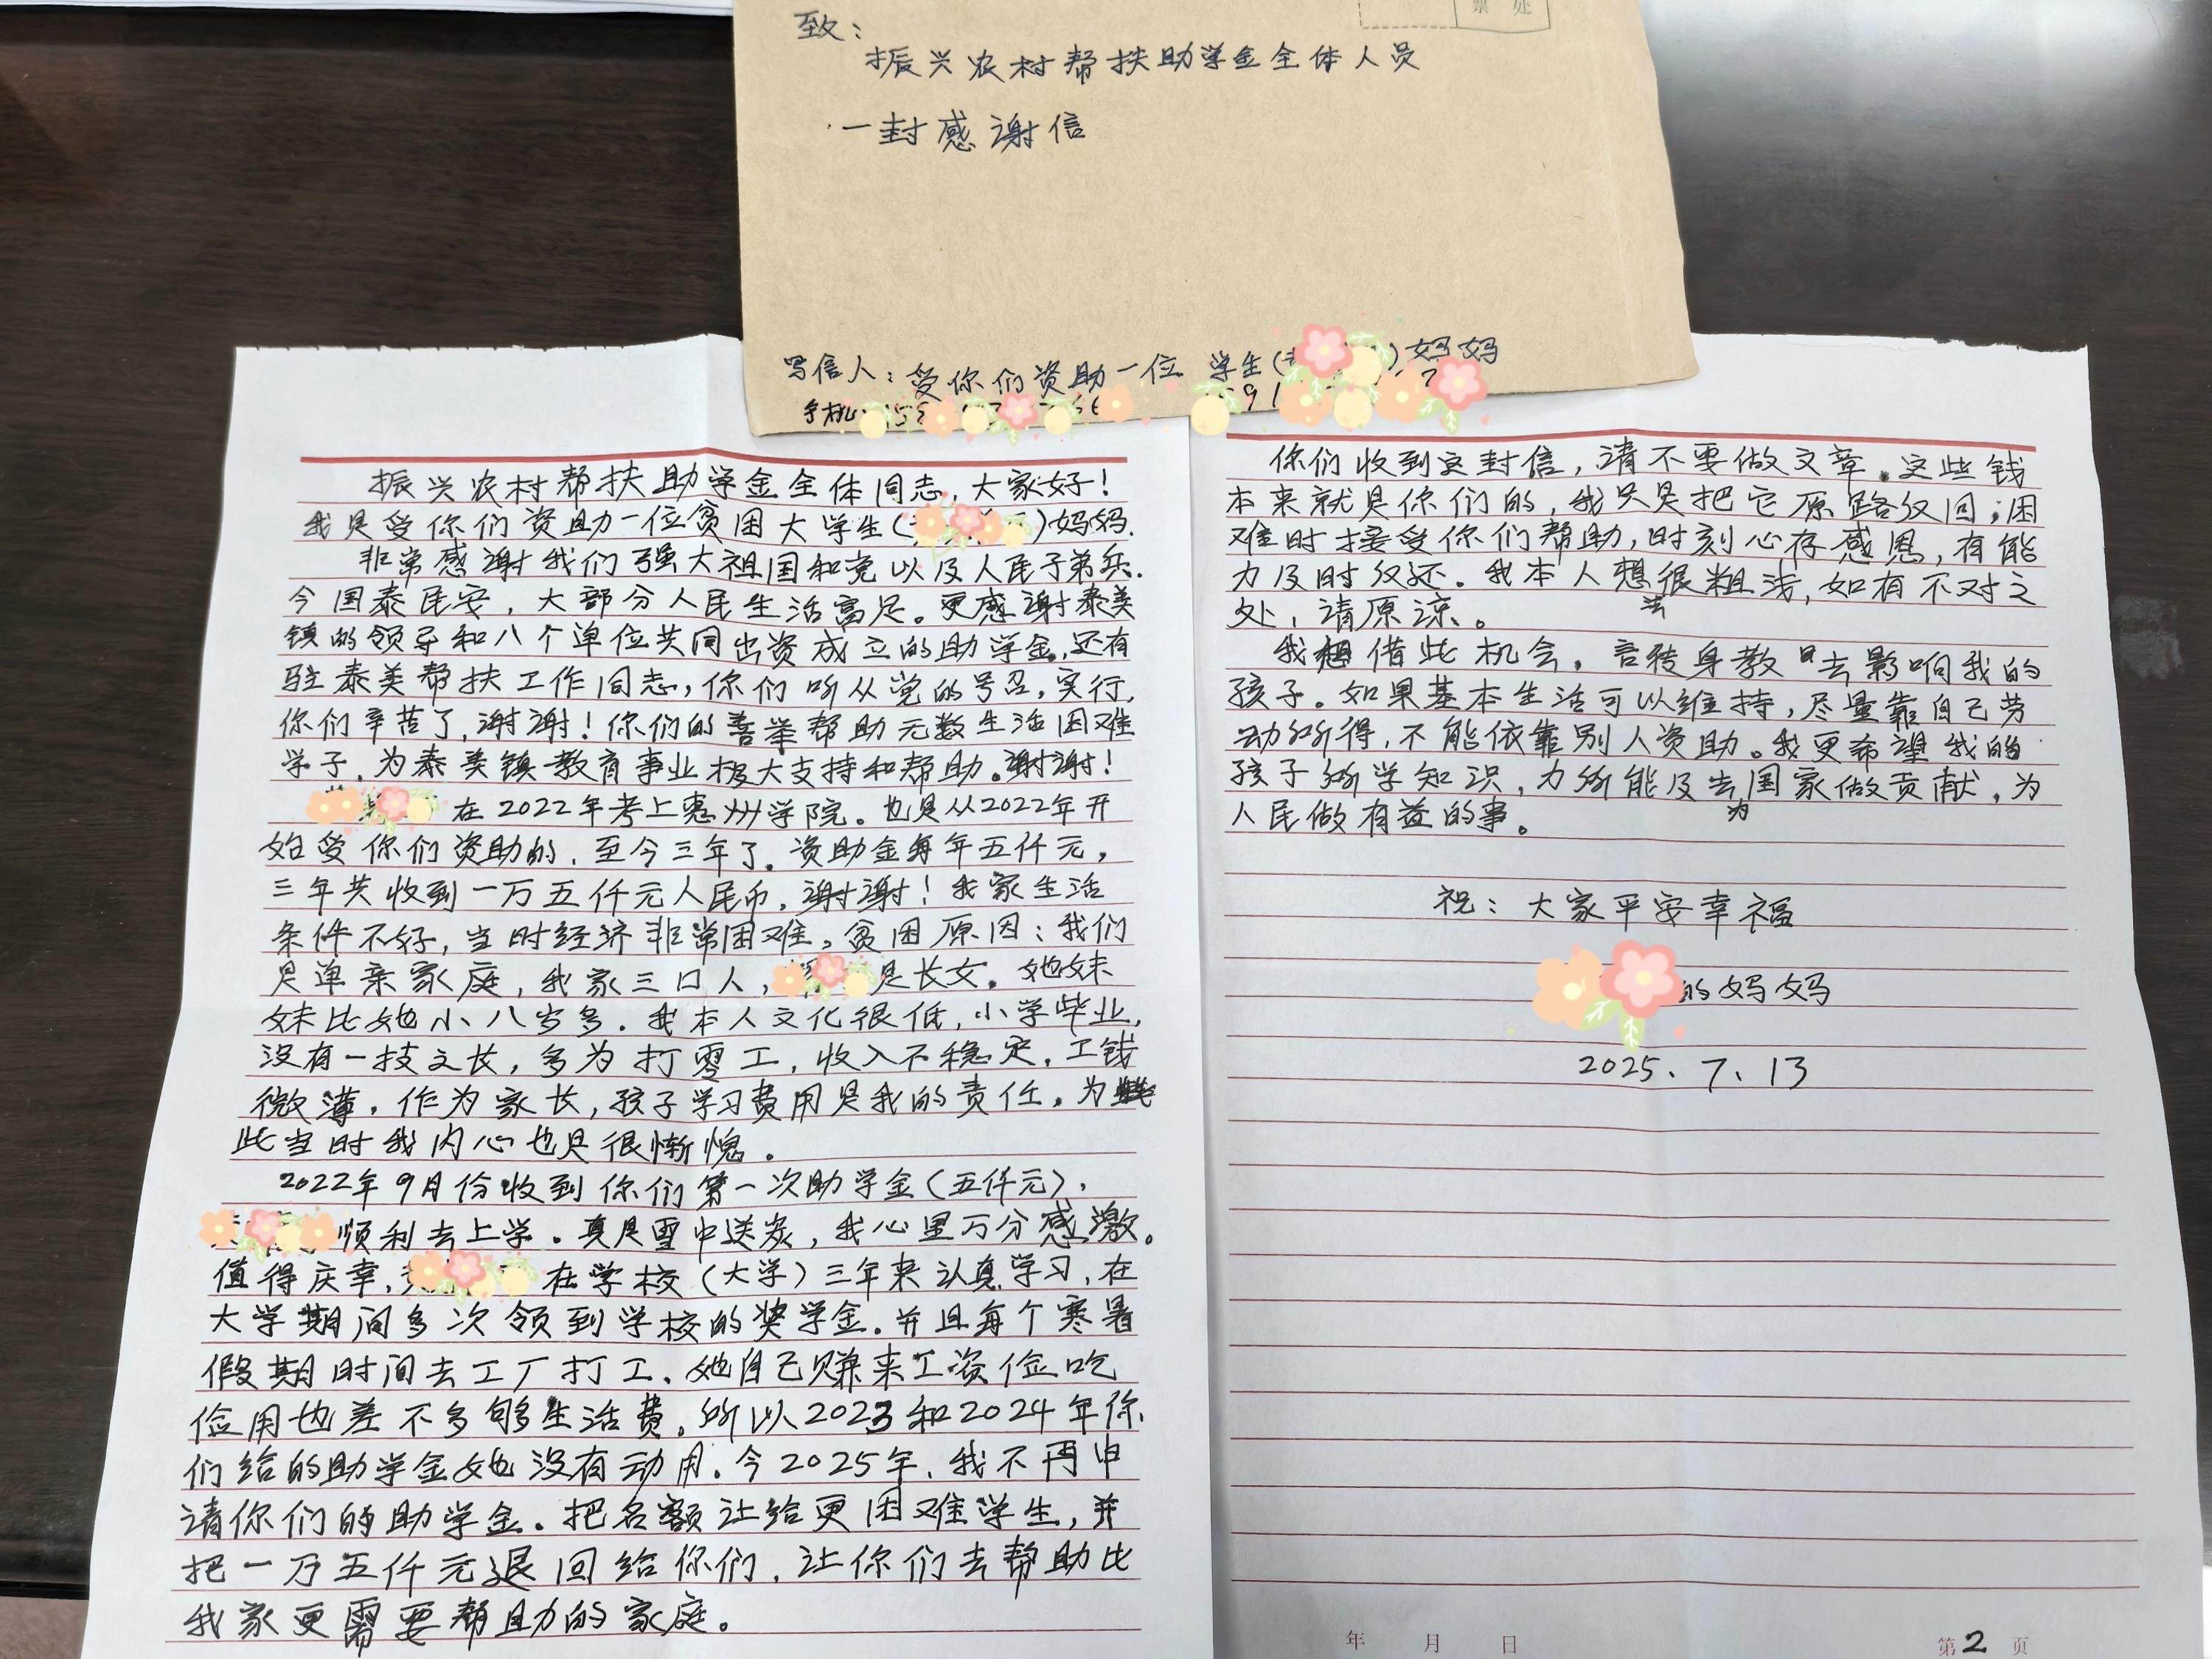 票 处
致：
振兴农村帮扶助学金全体人员
一封感谢信
写信人：受你们资助一位 学生( )妈妈
手机
振兴农村帮扶助学金全体同志，大家好！
我是受你们资助一位贫困大学生( )妈妈.
非常感谢我们强大祖国和党以及人民子弟兵.
今国泰民安，大部分人民生活富足。更感谢泰美
镇的领导和八个单位共同出资成立的助学金,还有
驻泰美帮扶工作同志，你们听从党的号召，实行,
你们辛苦了,谢谢！你们的善举帮助无数生活困难
学子，为泰美镇教育事业极大支持和帮助。谢谢！
在2022年考上惠州学院。也是从2022年开
始受你们资助的，至今三年了。资助金每年五仟元，
三年共收到一万五仟元人民币，谢谢！我家生活
条件不好，当时经济非常困难。贫困原因：我们
是单亲家庭，我家三口人， 是长女。她妹
妹比她小八岁多。我本人文化很低，小学毕业，
没有一技之长，多为打零工，收入不稳定，工钱
微薄。作为家长，孩子学习费用是我的责任。为
此当时我内心也是很惭愧。
2022年9月份收到你们第一次助学金（五仟元），
顺利去上学。真是雪中送炭，我心里万分感激。
值得庆幸， 在学校（大学）三年来认真学习，在
大学期间多次领到学校的奖学金。并且每个寒暑
假期时间去工厂打工、她自己赚来工资俭吃
俭用也差不多够生活费。所以2023和2024年你
们给的助学金她没有动用。今2025年，我不再申
请你们的助学金。把名额让给更困难学生，并
把一万五仟元退回给你们，让你们去帮助比
我家更需要帮助的家庭。
你们收到这封信，请不要做文章。这些钱
本来就是你们的，我只是把它原路仅回；困
难时接受你们帮助，时刻心存感恩，有能
力及时仅还。我本人想法很粗浅，如有不对之
处，请原谅。
我想借此机会，言传身教去影响我的
孩子。如果基本生活可以维持，尽量靠自己劳
动所得，不能依靠别人资助。我更希望我的
孩子所学知识，力所能及去为国家做贡献，为
人民做有益的事。
祝：大家平安幸福
的妈妈
2025、7、13
年 月 日
第2页